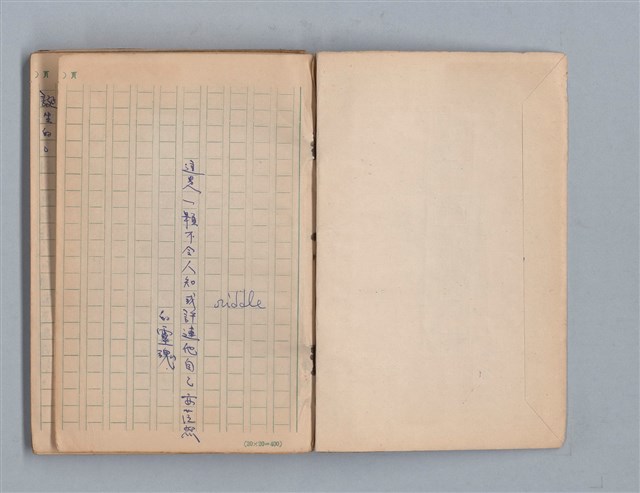 riddle
這是一顆不令人知或許連他自己亦茫然
的靈魂
(20×20=400)
頁
頁
誕生的